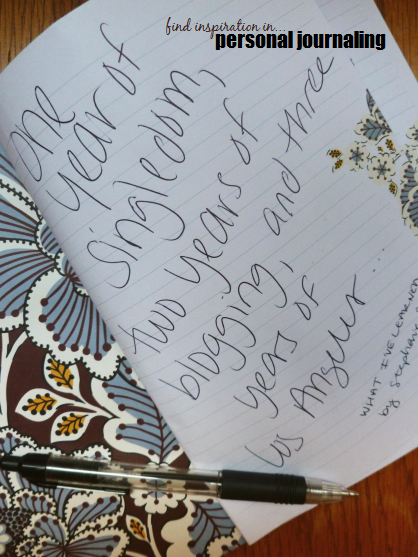 find inspiration in...
personal journaling
one
year of
singledom,
two years of
blogging, and three
years of
Los Angeles ...
WHAT I'VE LEARNED
by Stephan